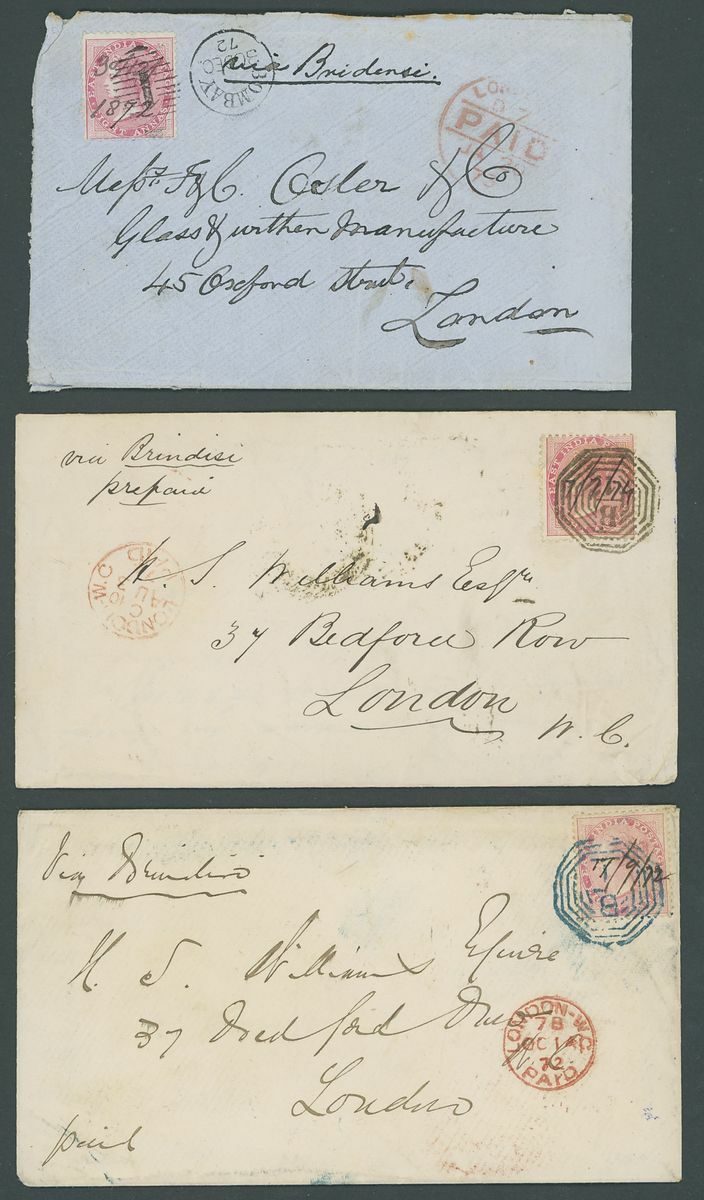 EAST INDIA
EIGHT ANNAS
1872
BOMBAY
30 DEC
72
via Bridensi.
PAID
Messrs F & C. Osler & Co
Glass & urthen Manufacture
45 Oxeford Street
London
via Brindisi
prepaid
EAST INDIA
7/7/74
B
LONDON W.C
PAID
H. S. Williams Esqre
37 Bedford Row
London
W. C.
Via Brindisi
INDIA POSTAGE
17/9/72
B
H. S. Williams Esquire
37 Bedford Row
W. C.
London
LONDON-W.C
7B
OC 14
72
PAID
paid